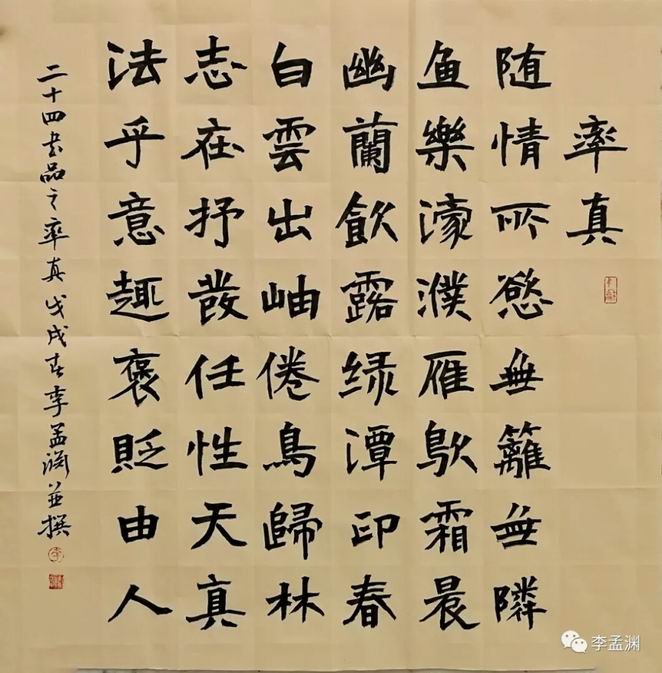 率真
随情所慾無籬無隣
鱼樂濠濮雁霜晨
幽蘭飲露绿潭印春
白雲出岫倦鳥歸林
志在抒發任性天真
法乎意趣褒貶由人
二十四书品之率真戊戌春李孟渊並撰
李孟渊